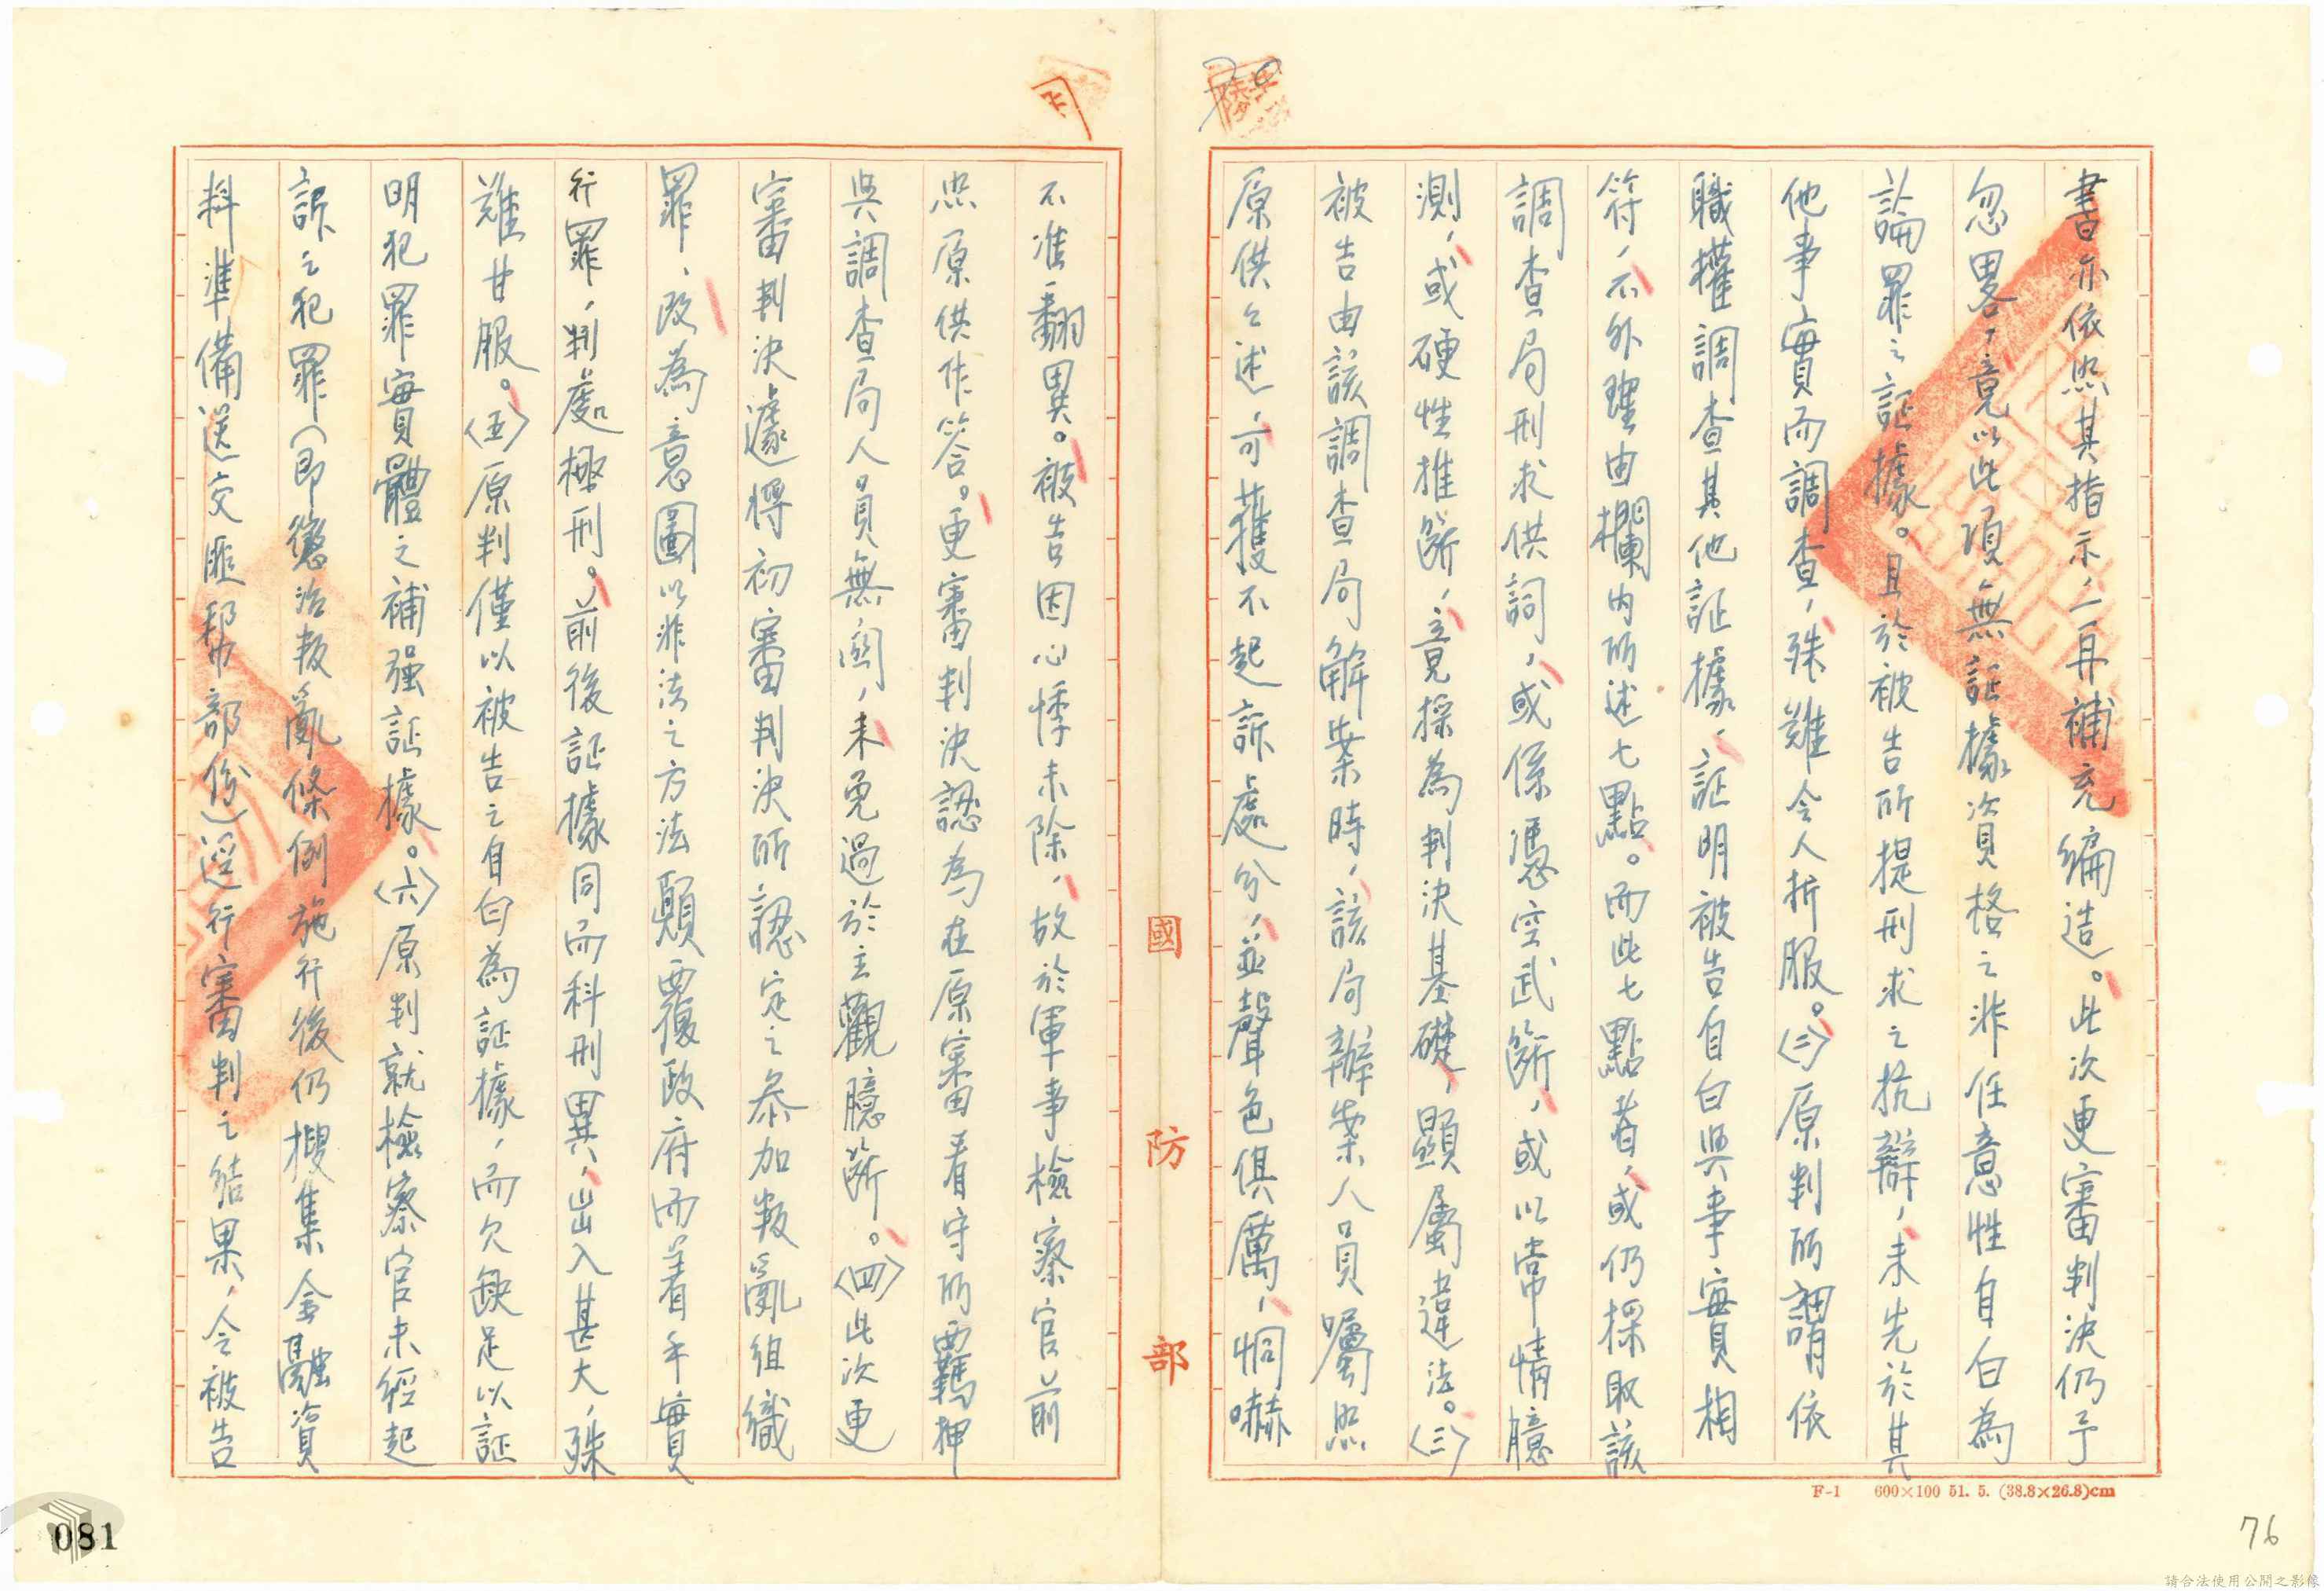 書亦依照其指示,一再補充編造。此次更審判決仍予
忽畧,竟以此項無証據資格之非任意性自白為
論罪之証據。且於被告所提刑求之抗辯,未先於其
他事實而調查,殊難令人折服。〈二〉原判所謂依
職權調查其他証據,証明被告自白與事實相
符,不外理由欄內所述七點。而此七點者,或仍採取該
調查局刑求供詞,或係憑空武斷,或以常情臆
測,或硬性推斷,竟採為判決基礎,顯屬違法。〈三〉
被告由該調查局解案時,該局辦案人員囑照
原供之述,可獲不起訴處分,並聲色俱厲,恫嚇
不准翻異。被告因心悸未除,故於軍事檢察官前
照原供作答。更審判決認為在原審看守所羈押
與調查局人員無關,未免過於主觀臆斷。〈四〉此次更
審判決遽將初審判決所認定之參加叛亂組織
罪,改為意圖以非法之方法顛覆政府而着手實
行罪,判處極刑。前後証據同而科刑異,出入甚大,殊
難甘服。〈五〉原判僅以被告之自白為証據,而欠缺足以証
明犯罪實體之補强証據。〈六〉原判就檢察官未經起
訴之犯罪(即懲治叛亂條例施行後仍搜集金融資
料準備送交匪幫部份)逕行審判之結果,令被告
國防部
F-1 600×100 51. 5. (38.8×26.8)cm
76
081
請合法使用公開之影像